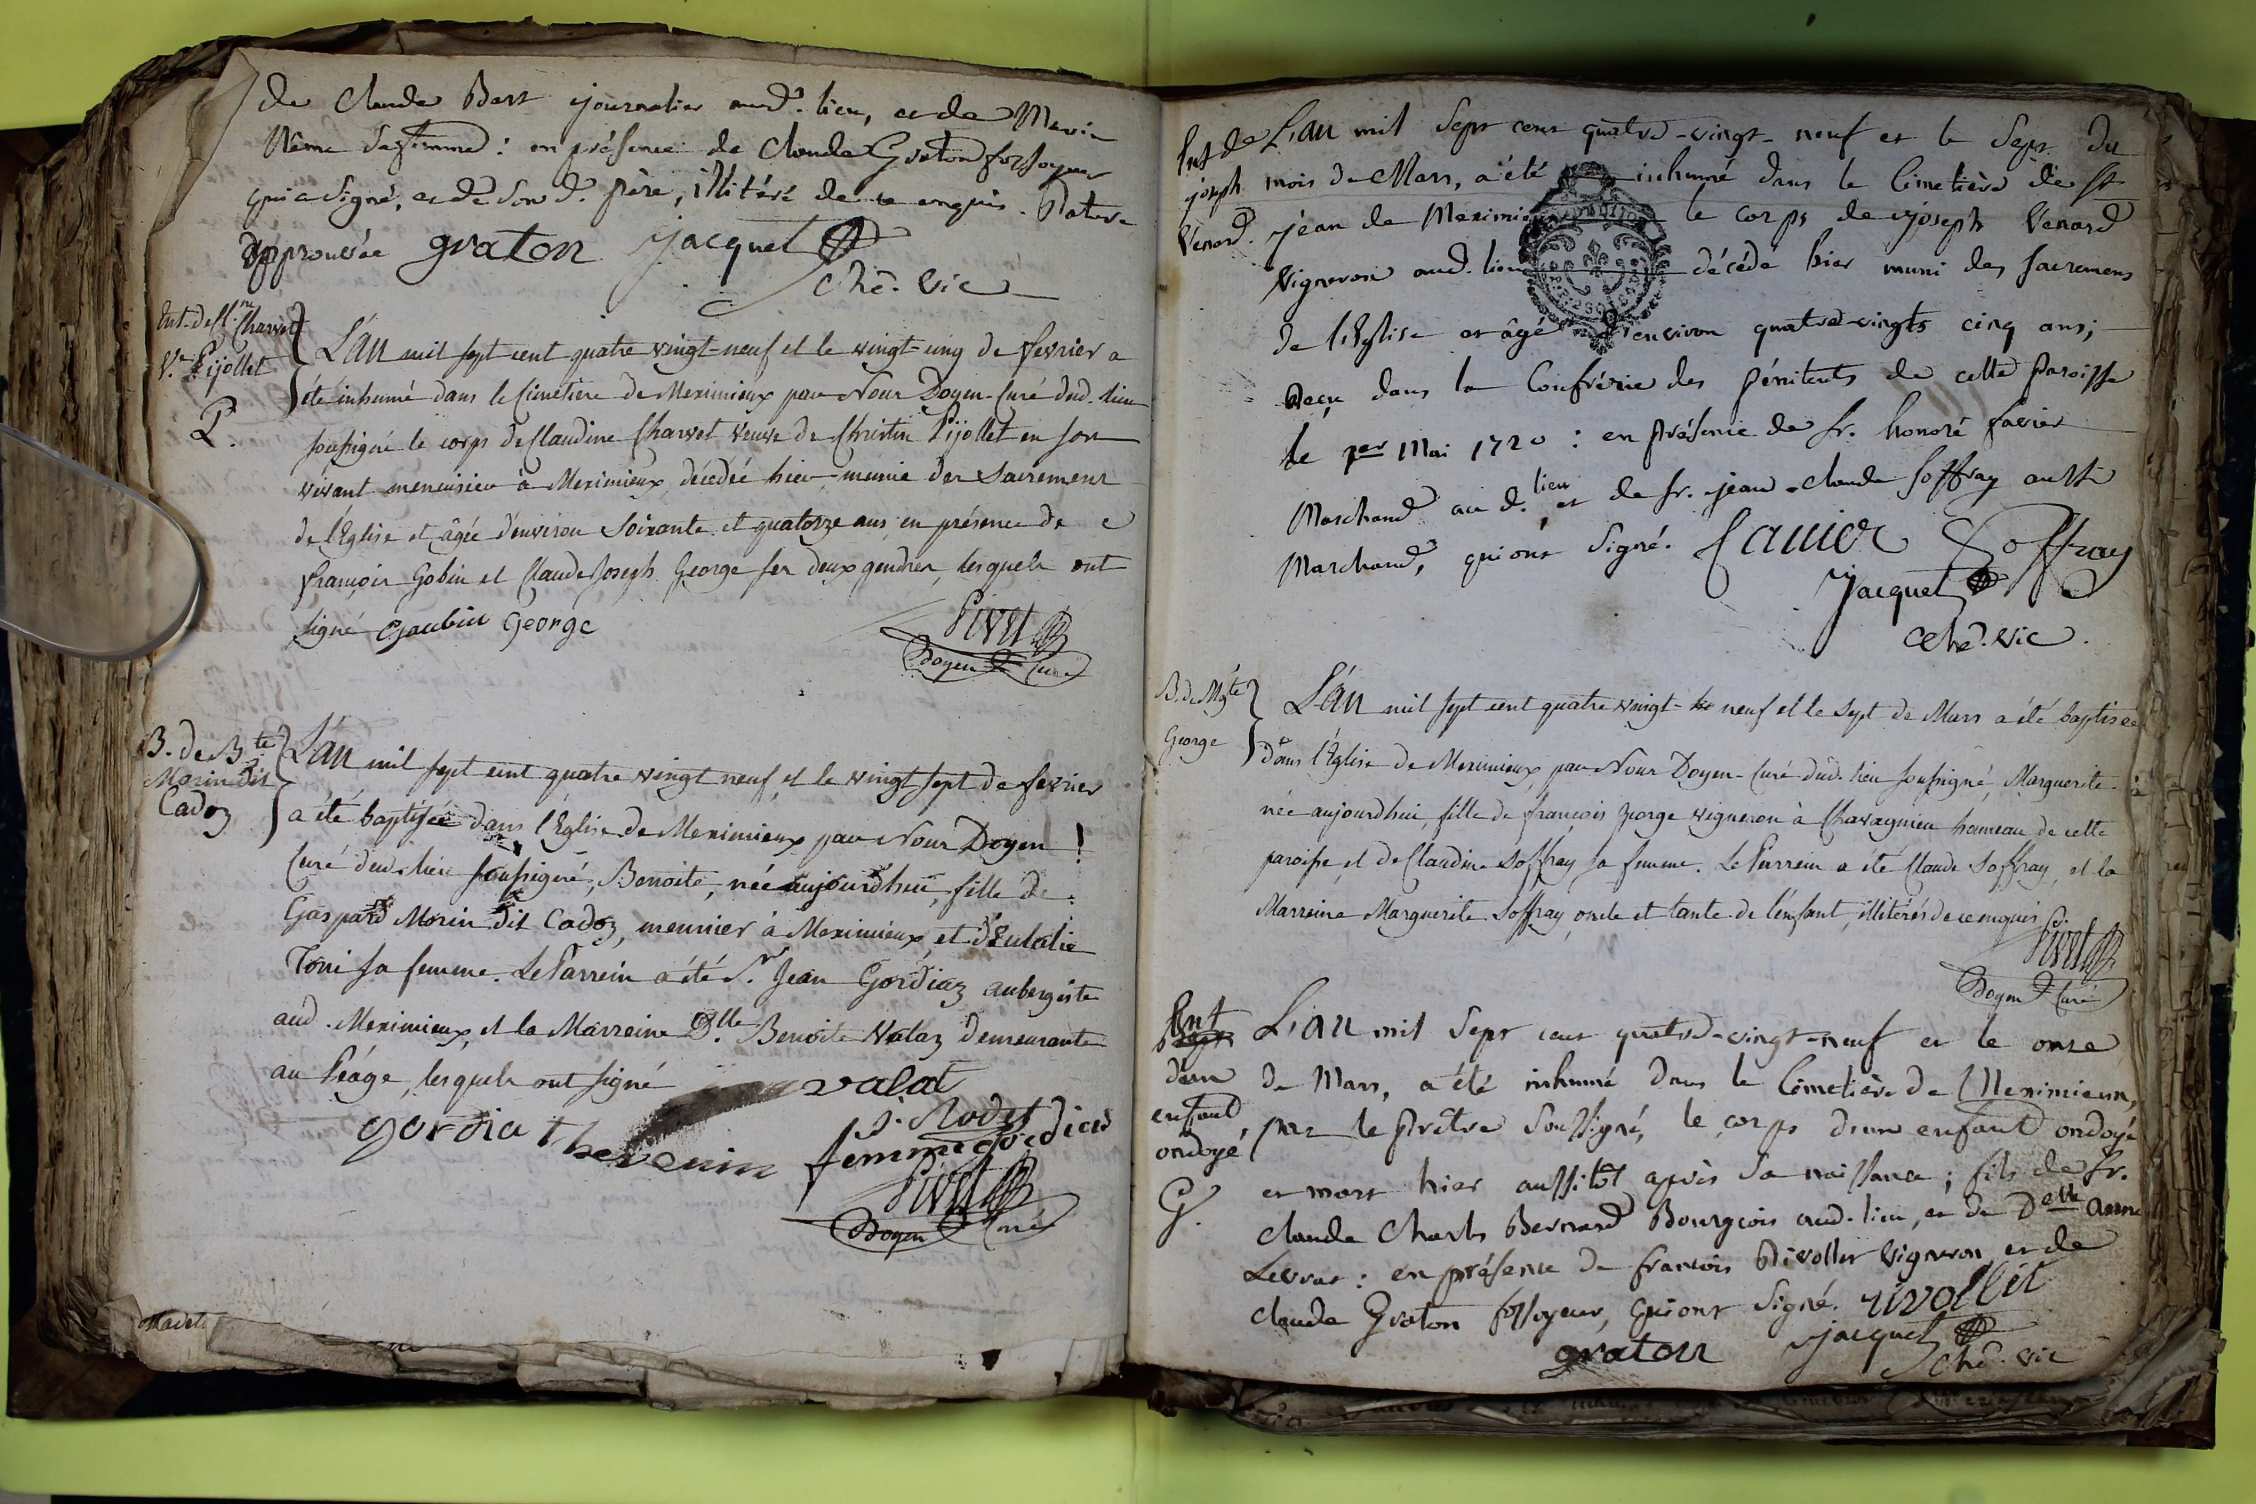 de Claude Bert journalier aud.t lieu, et de Marie
Nême sa femme: en présence de Claude Graton fossoyeur
qui a signé, et de son d. père, illitéré de ce enquis. Rature
approuvée graton jacquet
ché. vic
Ent. de Cl.ne Charvet
V.e Pijollet
P.
L'an mil sept cent quatre vingt-neuf et le vingt-ung de fevrier a
été inhumé dans le Cimetiere de Meximieux par Nous Doyen-Curé dud. lieu
soussigné le corps de Claudine Charvet veuve de Christin Pijollet en son
vivant menuisier à Meximieux, décédée hier munie des Sacremens
de l'Eglise et âgée d'environ soixante et quatorze ans, en présence de
françois Gobin et Claude Joseph George ses deux gendres, lesquels ont
signé Gaubin George
Pivet
Doyen Curé
B. de B.te
Morin dit
Cadoz
L'an mil sept cent quatre vingt neuf et le vingt sept de fevrier
a été baptisée dans l'Eglise de Meximieux par Nous Doyen
Curé dud. lieu soussigné, Benoite, née aujourdhui, fille de
Gaspard Morin dit Cadoz, meunier à Meximieux, et d'Eulalie
Toni sa femme. Le Parrein a été S.r Jean Gordiaz aubergiste
aud. Meximieux, et la Marreine D.lle Benoite Valaz demeurante
au Péage, lesquels ont signé
valat
gordiat thevenin
femme gordiat
Pivet
Doyen Curé
Ent de
joseph
Venard.
L'an mil sept cent quatre-vingt-neuf et le sept du
mois de Mars, a été inhumé dans le Cimetière de St
jean de Meximieux le corps de joseph Venard
Vigneron aud. lieu décédé hier muni des sacremens
de l'Eglise et âgé d'environ quatre-vingts cinq ans;
Reçu dans la Confrérie des pénitents de cette paroisse
le 1er Mai 1720: en présence de sr. honoré favier
Marchand au d. lieu, et de sr. jean-claude soffray aussi
Marchand, qui ont signé. favier Soffray
jacquet
ché. vic.
B. de Mg.te
George
L'an mil sept cent quatre vingt- neuf et le sept de Mars a été baptisée
dans l'Eglise de Meximieux, par Nous Doyen-Curé dud. lieu soussigné, Marguerite
née aujourdhui, fille de françois George vigneron à Chavagnieu hameau de cette
paroisse, et de Claudine Soffray sa femme. Le Parrein a été Claude Soffray, et la
Marreine Marguerite Soffray oncle et tante de l'enfant, illitérés de ce enquis
Pivet
Doyen Curé
Ent
d'un
enfant
ondoyé
G.
L'an mil sept cent quatre-vingt-neuf et le onze
de Mars, a été inhumé dans le Cimetière de Meximieux,
par le prêtre soussigné, le corps d'un enfant ondoyé
et mort hier aussitôt après sa naissance; fils de sr.
Claude Charles Bernard Bourgeois aud. lieu, et de Delle Anne
Levrat: en présence de françois Rivollet vigneron, et de
claude Graton fossoyeur, qui ont signé. rivollet
graton jacquet
ché. vic